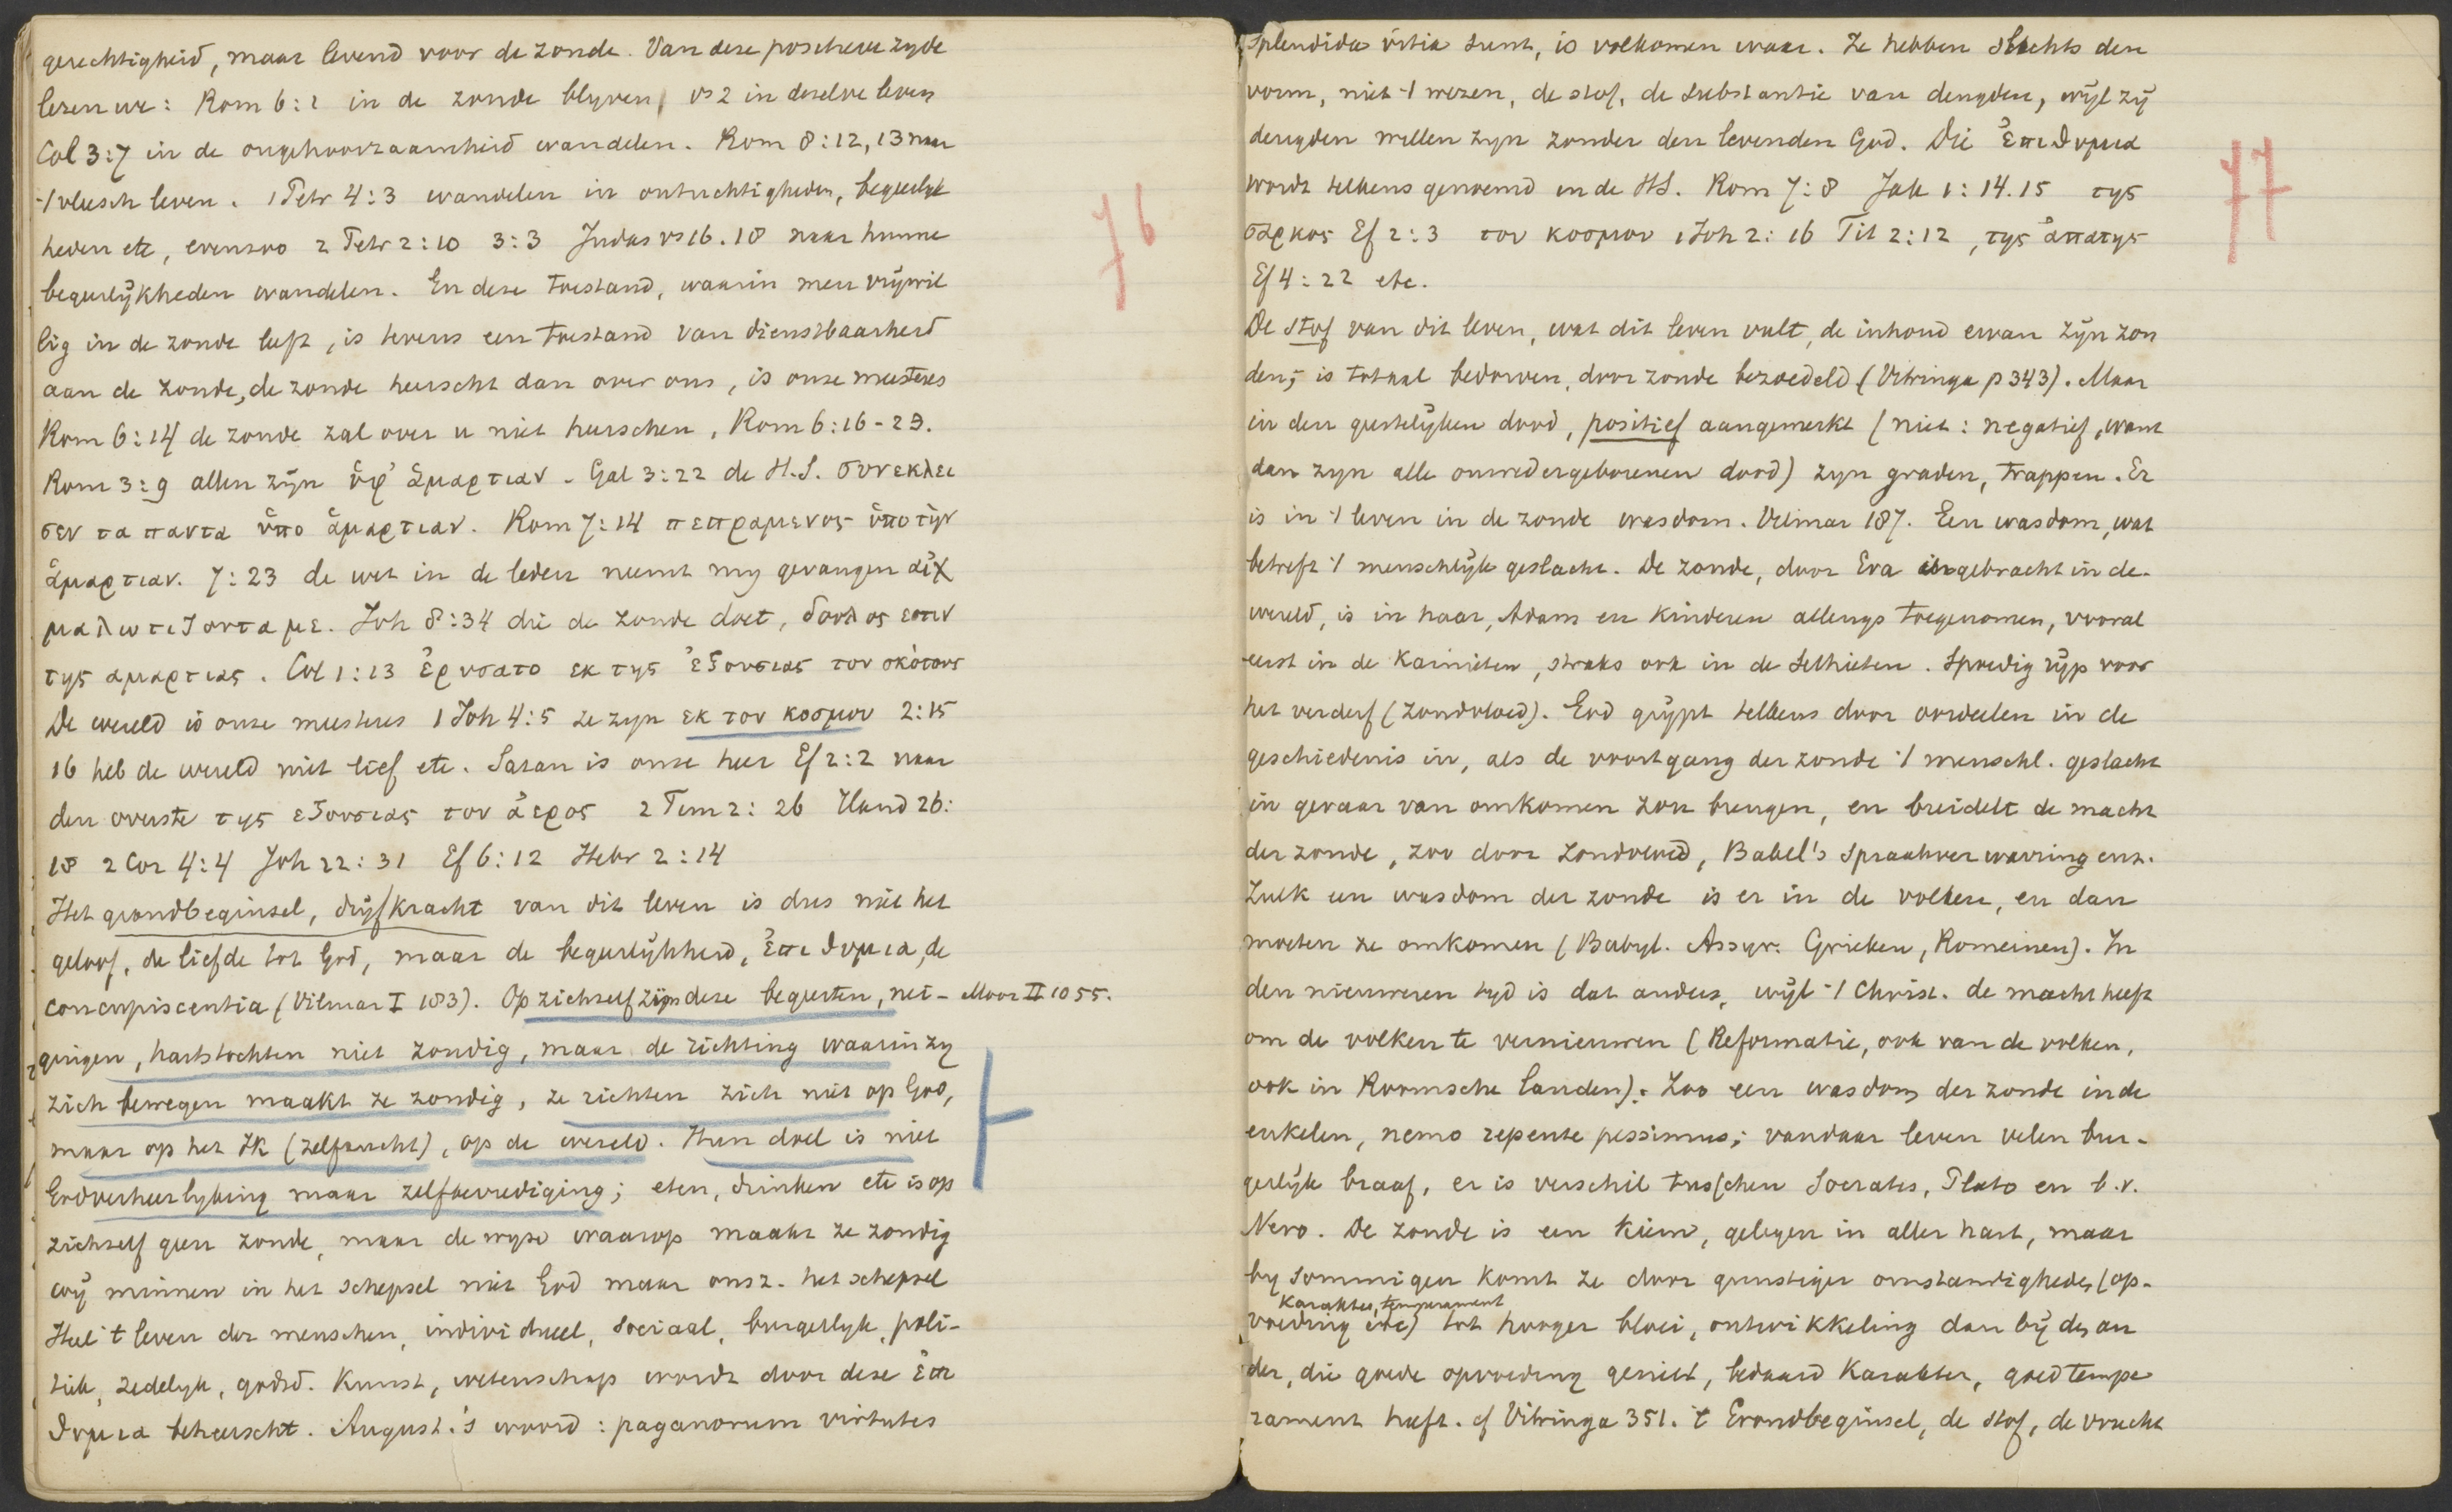 gerechtigheid, maar levend voor de zonde. Van deze positieve zyde
lezen we: Rom 6:1 in de zonde blyven, vs 2 in dezelve leven
Col 3:7 in de ongehoorzaamheid wandelen. Rom 8:12, 13 naar
't vleesch leven. 1 Petr 4:3 wandelen in ontuchtigheden, begeerlyk
heden etc, evenzoo 2 Petr 2:10 3:3 Judas vs 16. 18 naar hunne
begeerlijkheden wandelen. En deze toestand, waarin men vrijwil
lig in de zonde leeft, is tevens een toestand van dienstbaarheid
aan de zonde, de zonde heerscht dan over ons, is onze meesteres
Rom 6:14 de zonde zal over u niet heerschen, Rom 6:16-23.
Rom 3:9 allen zijn ὑφ' ἁμαρτιαν. Gal 3:22 de H.S. συνεκλει
σεν τα παντα ὑπο ἁμαρτιαν. Rom 7:14 πεπραμενος ὑπο τὴν
ἁμαρτιαν. 7:23 de wet in de leden neemt my gevangen αἰχ
μαλωτιζοντα με. Joh 8:34 die de zonde doet, δουλος εστιν
της αμαρτιας. Col 1:13 ἐρυσατο εκ της ἐξουσιας του σκότους
De wereld is onze meesteres 1 Joh 4:5 ze zyn εκ του κοσμου 2:15
16 heb de wereld niet lief etc. Satan is onze heer Ef 2:2 naar
den overste της εξουσιας του ἀερος 2 Tim 2:26 Hand 26:
18 2 Cor 4:4 Joh 12:31 Ef 6:12 Hebr 2:14
Het grondbeginsel, drijfkracht van dit leven is dus niet het
geloof, de liefde tot God, maar de begeerlijkheid, ἐπιθυμια, de
concupiscentia (Vilmar I 183). Op zichzelf zijn deze begeerten, nei- Moor II 1055.
gingen, hartstochten niet zondig, maar de richting waarin zy
zich bewegen maakt ze zondig, ze richten zich niet op God,
maar op het Ik (zelfzucht), op de wereld. Hun doel is niet
Godverheerlyking maar zelfbevrediging; eten, drinken etc is op
zichzelf geen zonde, maar de wyse waarop maakt ze zondig
wij minnen in het schepsel niet God maar onsz. het schepsel
Heel 't leven der menschen, individueel, sociaal, burgerlyk, poli-
tiek, zedelyk, godsd. Kunst, wetenschap wordt door deze ἐπι
θυμια beheerscht. August.'s woord: paganorum virtutes
76
splendida vitia sunt, is volkomen waar. Ze hebben slechts den
vorm, niet 't wezen, de stof, de substantie van deugden, wijl zij
deugden willen zyn zonder den levenden God. Die ἐπιθυμια
wordt telkens genoemd in de HS. Rom 7:8 Jak 1:14.15 της
σαρκος Ef 2:3 του κοσμου 1 Joh 2:16 Tit 2:12, της ἀπατης
Ef 4:22 etc.
De stof van dit leven, wat dit leven vult, de inhoud ervan zijn zon
den; is totaal bedorven, door zonde bezoedeld (Vitringa p 343). Maar
in den geestelijken dood, positief aangemerkt (niet: negatief, want
dan zyn alle onwedergeborenen dood) zyn graden, trappen. Er
is in 't leven in de zonde wasdom. Vilmar 187. Een wasdom, wat
betreft 't menschlijk geslacht. De zonde, door Eva ingebracht in de
wereld, is in haar, Adam en kinderen allengs toegenomen, vooral
eerst in de Kainieten, straks ook in de Sethieten. Spoedig rijp voor
het verderf (zondvloed). God grijpt telkens door oordeelen in de
geschiedenis in, als de voortgang der zonde 't menschl. geslacht
in gevaar van omkomen zou brengen, en breidelt de macht
der zonde, zoo door zondvloed, Babel's spraakverwarring enz.
Zulk een wasdom der zonde is er in de volken, en dan
moeten ze omkomen (Babyl. Assyr. Grieken, Romeinen). In
den nieuweren tyd is dat anders, wijl 't Christ. de macht heeft
om de volken te vernieuwen (Reformatie, ook van de volken,
ook in Roomsche landen). Zoo een wasdom der zonde in de
enkelen, nemo repente pessimus; vandaar leven velen bur-
gerlijk braaf, er is verschil tusschen Socrates, Plato en b.v.
Nero. De zonde is een kiem, gelegen in aller hart, maar
by sommigen komt ze door gunstiger omstandigheden (op-
karakter, temperament
voeding etc) tot hooger bloei, ontwikkeling dan bij den an
der, die goede opvoeding geniet, bedaard karakter, goed tempe
rament heeft. cf Vitringa 351. 't Grondbeginsel, de stof, de vrucht
77